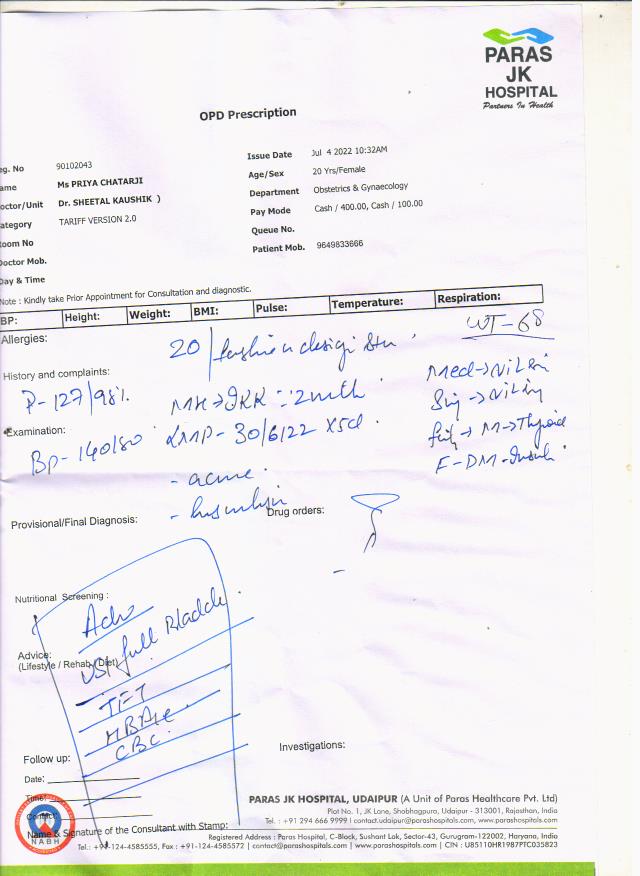 PARAS
JK
HOSPITAL
Partners In Health
OPD Prescription
eg. No 90102043
ame Ms PRIYA CHATARJI
octor/Unit Dr. SHEETAL KAUSHIK )
ategory TARIFF VERSION 2.0
oom No
Doctor Mob.
Day & Time
Issue Date Jul 4 2022 10:32AM
Age/Sex 20 Yrs/Female
Department Obstetrics & Gynaecology
Pay Mode Cash / 400.00, Cash / 100.00
Queue No.
Patient Mob. 9649833666
Note : Kindly take Prior Appointment for Consultation and diagnostic.
BP: Height: Weight: BMI: Pulse: Temperature: Respiration:
WT-68
Allergies:
20/ fashion design
History and complaints:
P-127/98%.
MH→ 2mth
Med→Nil
→Nil
Examination:
Bp-140/80
LMP-30/6/22 x5d
→M→Thyroid
F-DM-Insuli
- acne.
Provisional/Final Diagnosis:
Drug orders:
Nutritional Screening :
Adv
Advice:
(Lifestyle / Rehab/Diet)
full Bladder
TFT
HBA1c
CBC
Follow up:
Investigations:
Date:
Time:
Contact:
Name & Signature of the Consultant with Stamp:
NABH
PARAS JK HOSPITAL, UDAIPUR (A Unit of Paras Healthcare Pvt. Ltd)
Plot No. 1, JK Lane, Shobhagpura, Udaipur - 313001, Rajasthan, India
Tel. : +91 294 666 9999 | contact.udaipur@parashospitals.com | www.parashospitals.com
Registered Address : Paras Hospital, C-Block, Sushant Lok, Sector-43, Gurugram-122002, Haryana, India
Tel.: +91-124-4585555, Fax : +91-124-4585572 | contact@parashospitals.com | www.parashospitals.com | CIN : U85110HR1987PTC035823